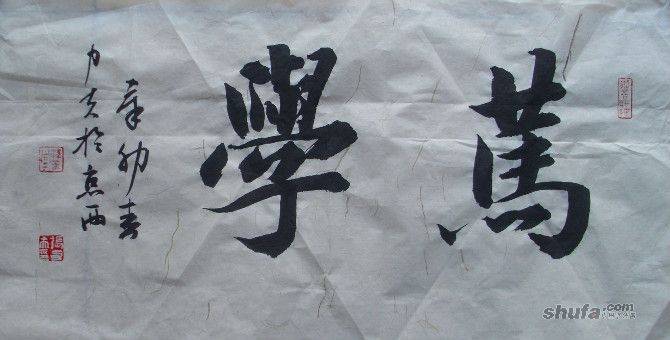 篤學
辛卯春
力夫於京西
shufa.com